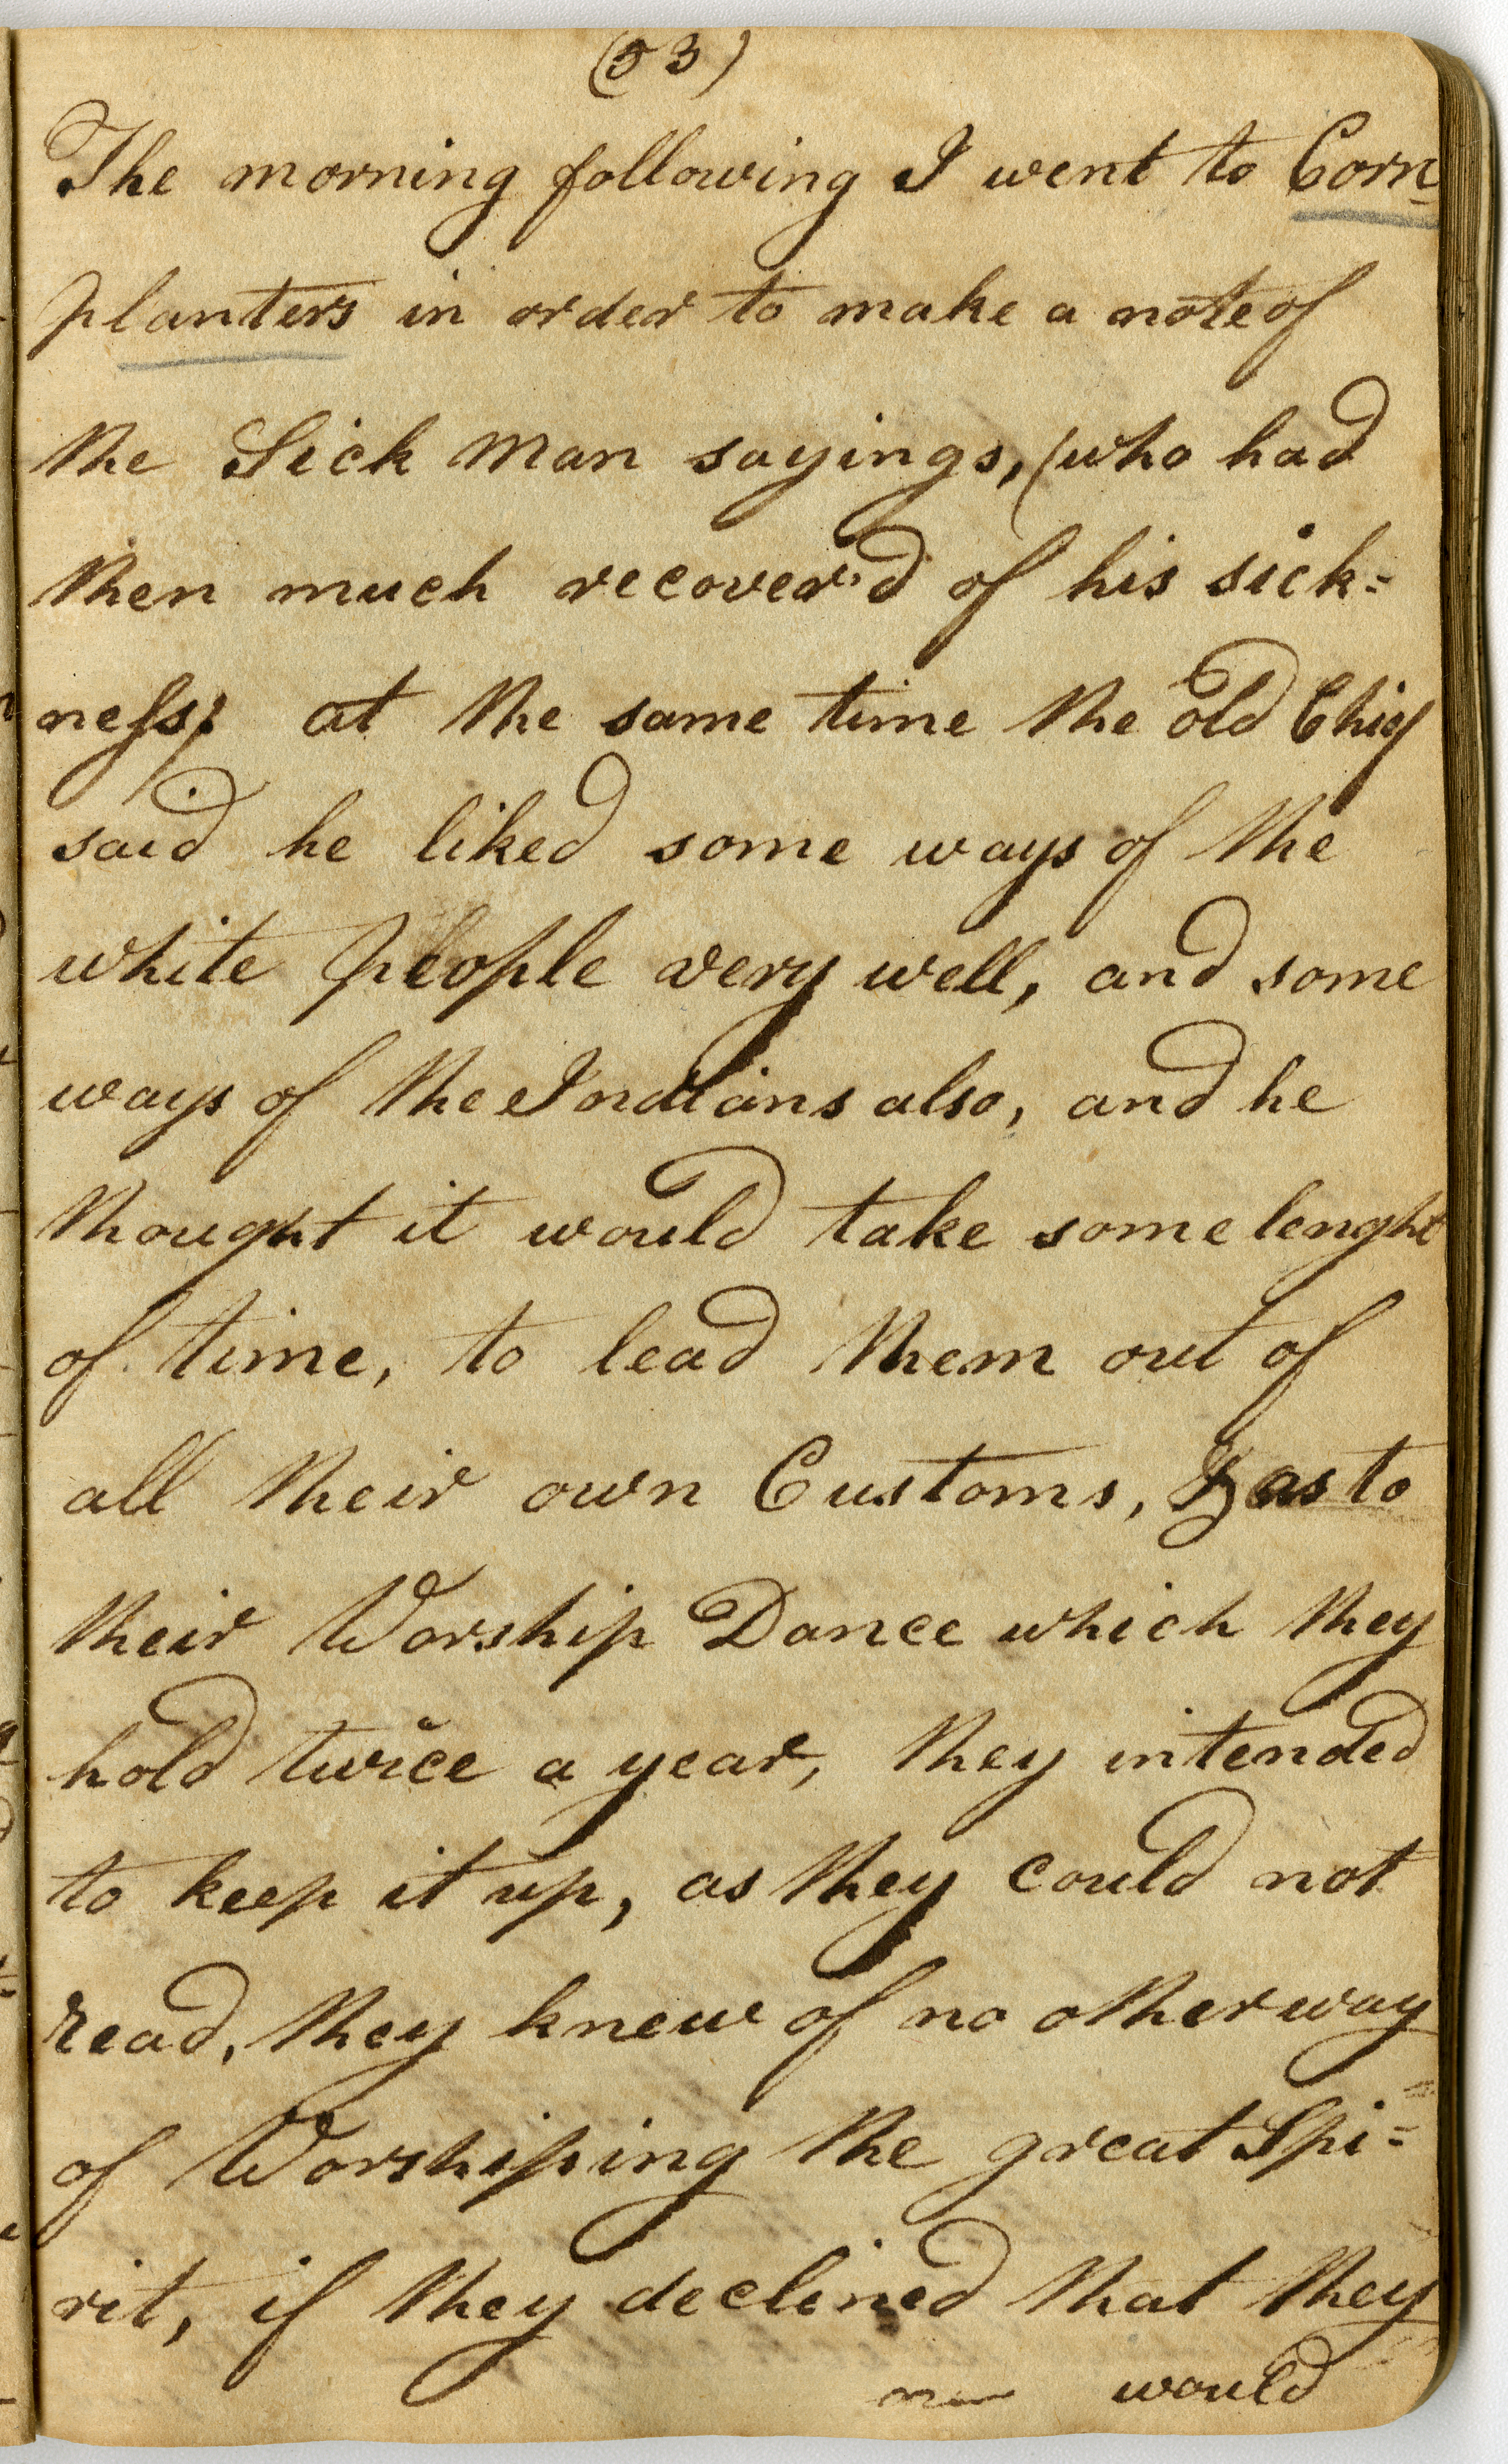 (53)
The morning following I went to Corn-
planters in order to make a note of
the Sick Man sayings, (who had
then much recover'd of his sick=
ness; at the same time the old Chief
said he liked some ways of the
white people very well, and some
ways of the Indians also, and he
thought it would take some lenght
of time, to lead them out of
all their own Customs, & as to
their Worship Dance which they
hold twice a year, they intended
to keep it up, as they could not
read, they knew of no other way
of Worshiping the great Spi=
rit, if they declined that they
would